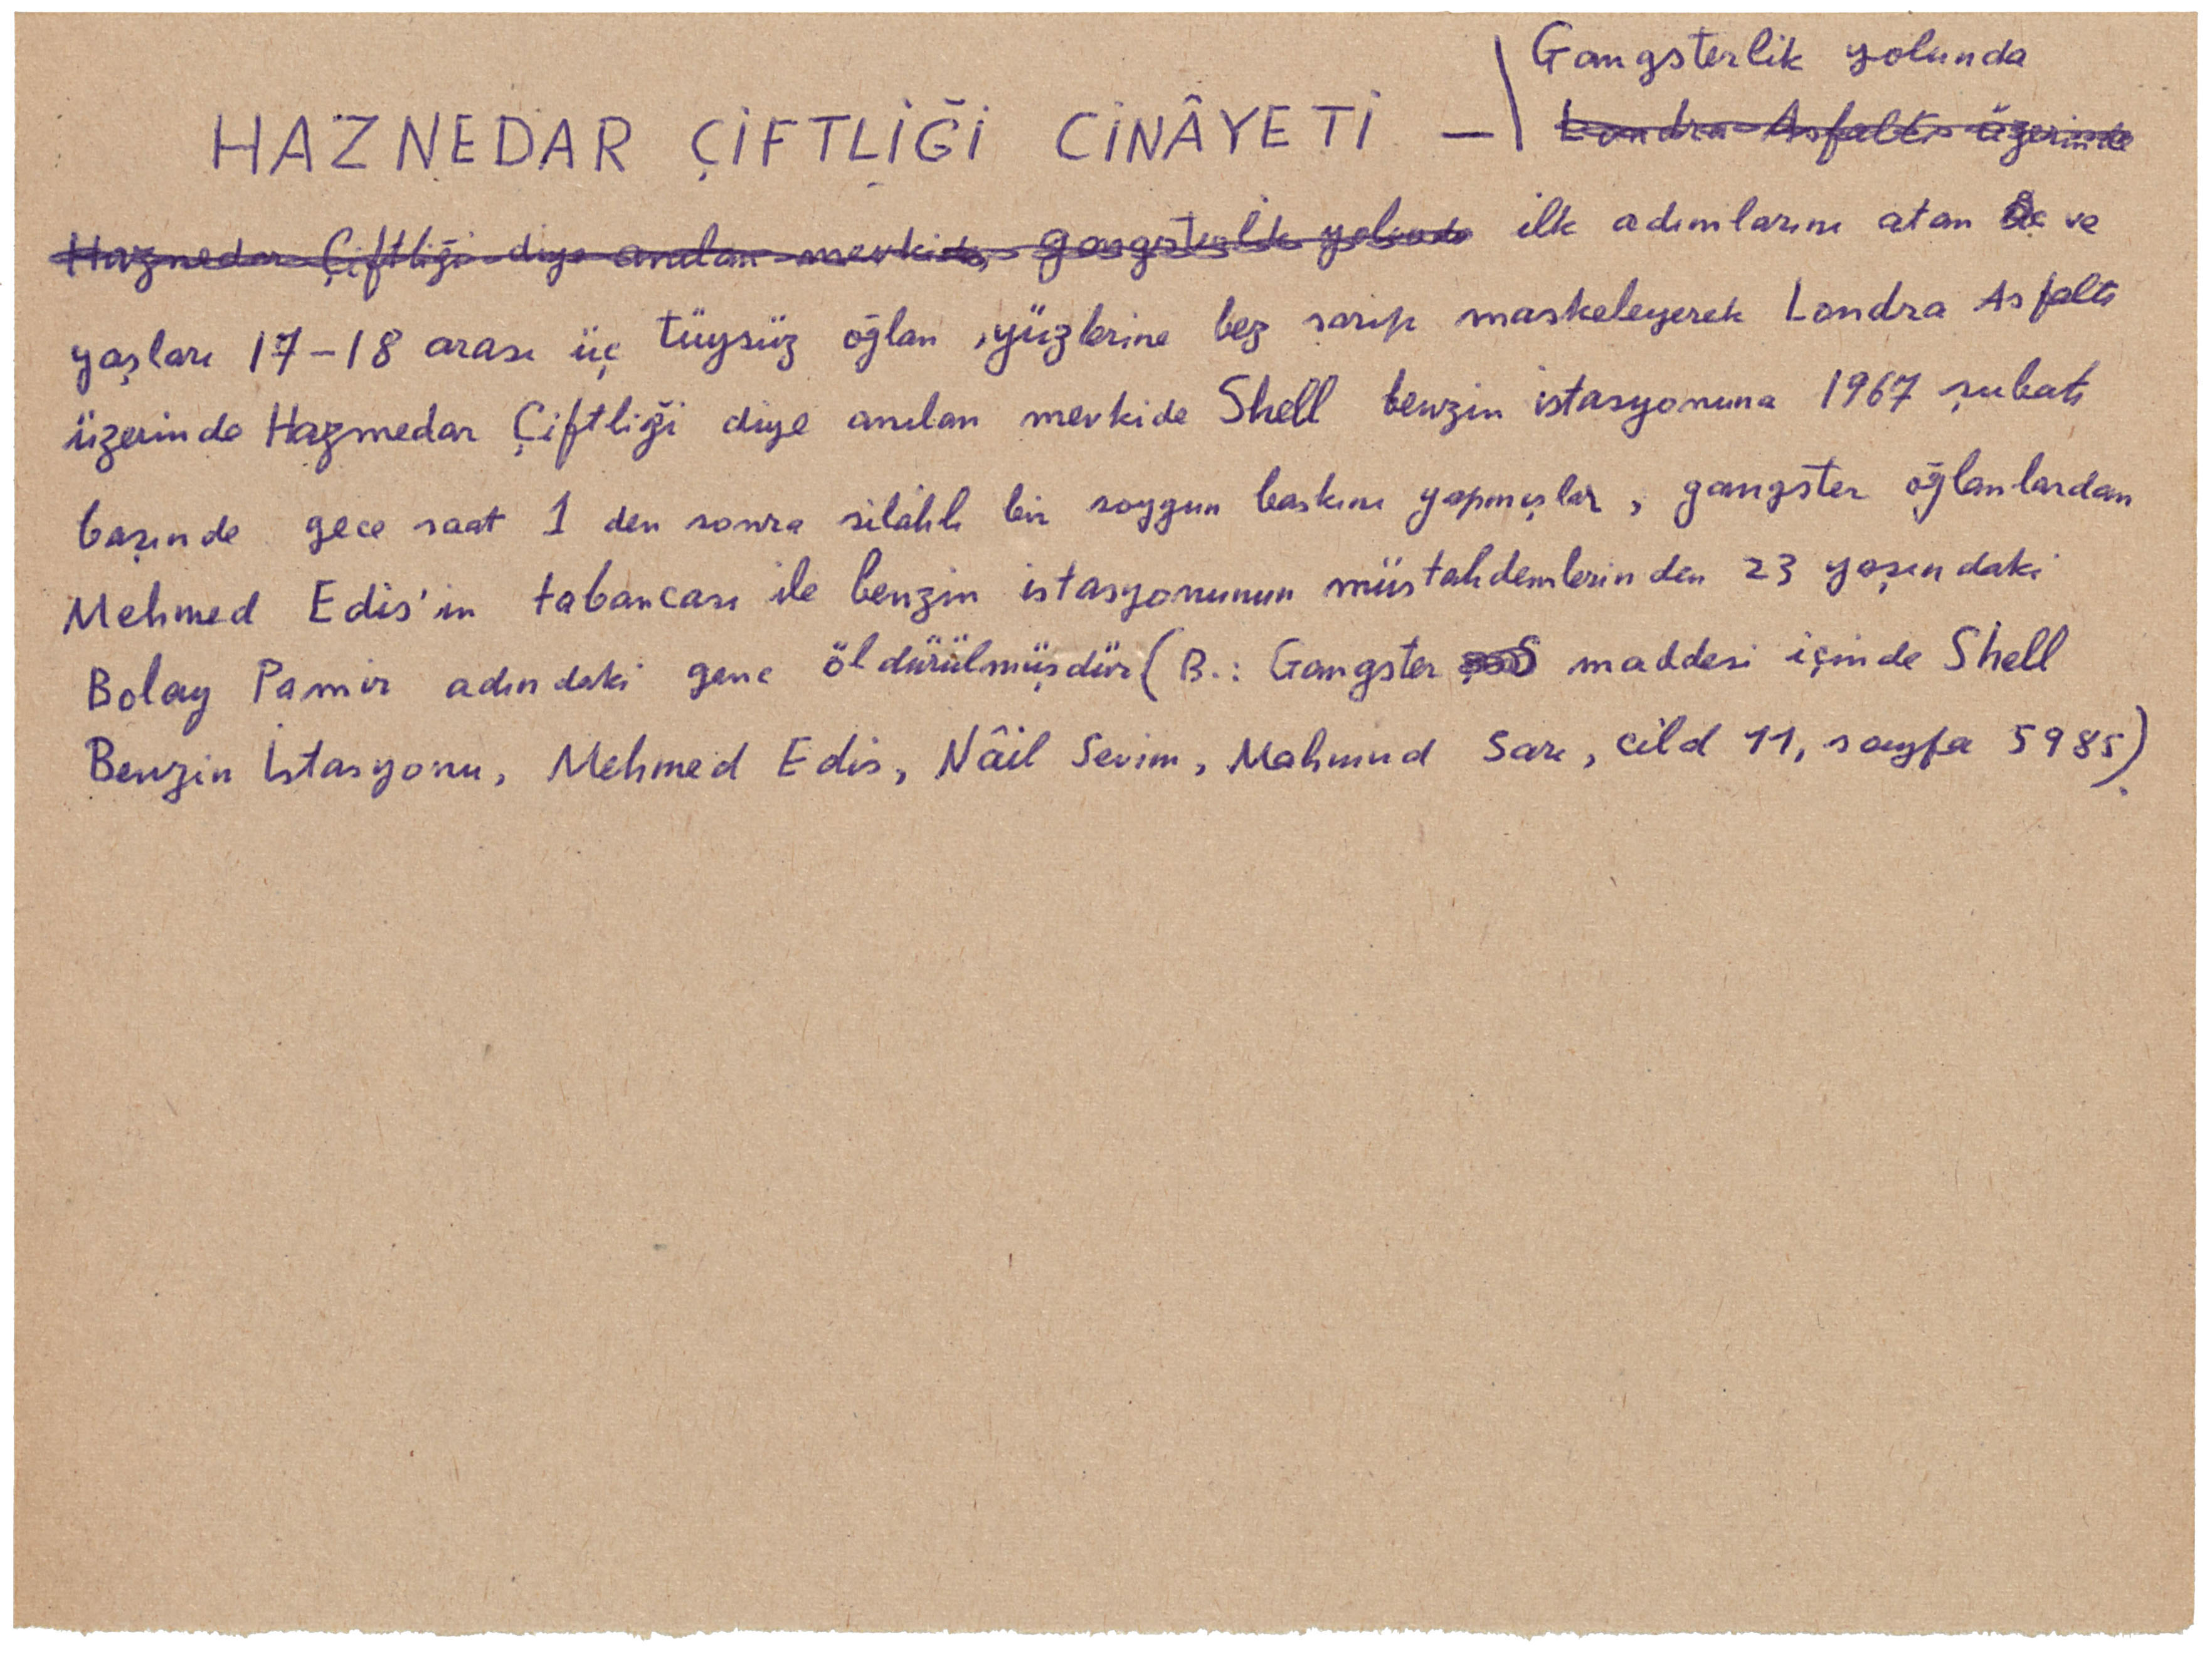 Gangsterlik yolunda
HAZNEDAR ÇİFTLİĞİ CİNÂYETİ — Londra Asfaltı üzerinde
Haznedar Çiftliği diye anılan mevkide, gangsterlik yolunda ilk adımlarını atan ve
yaşları 17-18 arası üç tüysüz oğlan, yüzlerine bez sarıp maskeleyerek Londra Asfaltı
üzerinde Haznedar Çiftliği diye anılan mevkide Shell benzin istasyonuna 1967 şubatı
başında gece saat 1 den sonra silâhlı bir soygun baskını yapmışlar, gangster oğlanlardan
Mehmed Edis'in tabancası ile benzin istasyonunun müstahdemlerinden 23 yaşındaki
Bolay Pamir adındaki genc öldürülmüşdür (B.: Gangster maddesi içinde Shell
Benzin İstasyonu, Mehmed Edis, Nâil Sevim, Mahmud Sarı, cild 11, sayfa 5985).